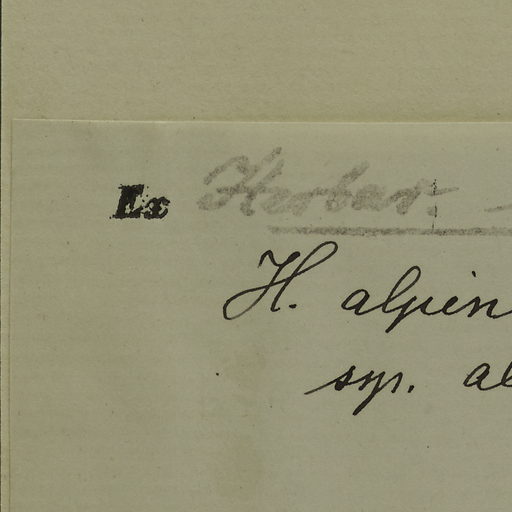 Ex Herbar.
H. alpin
syn. al